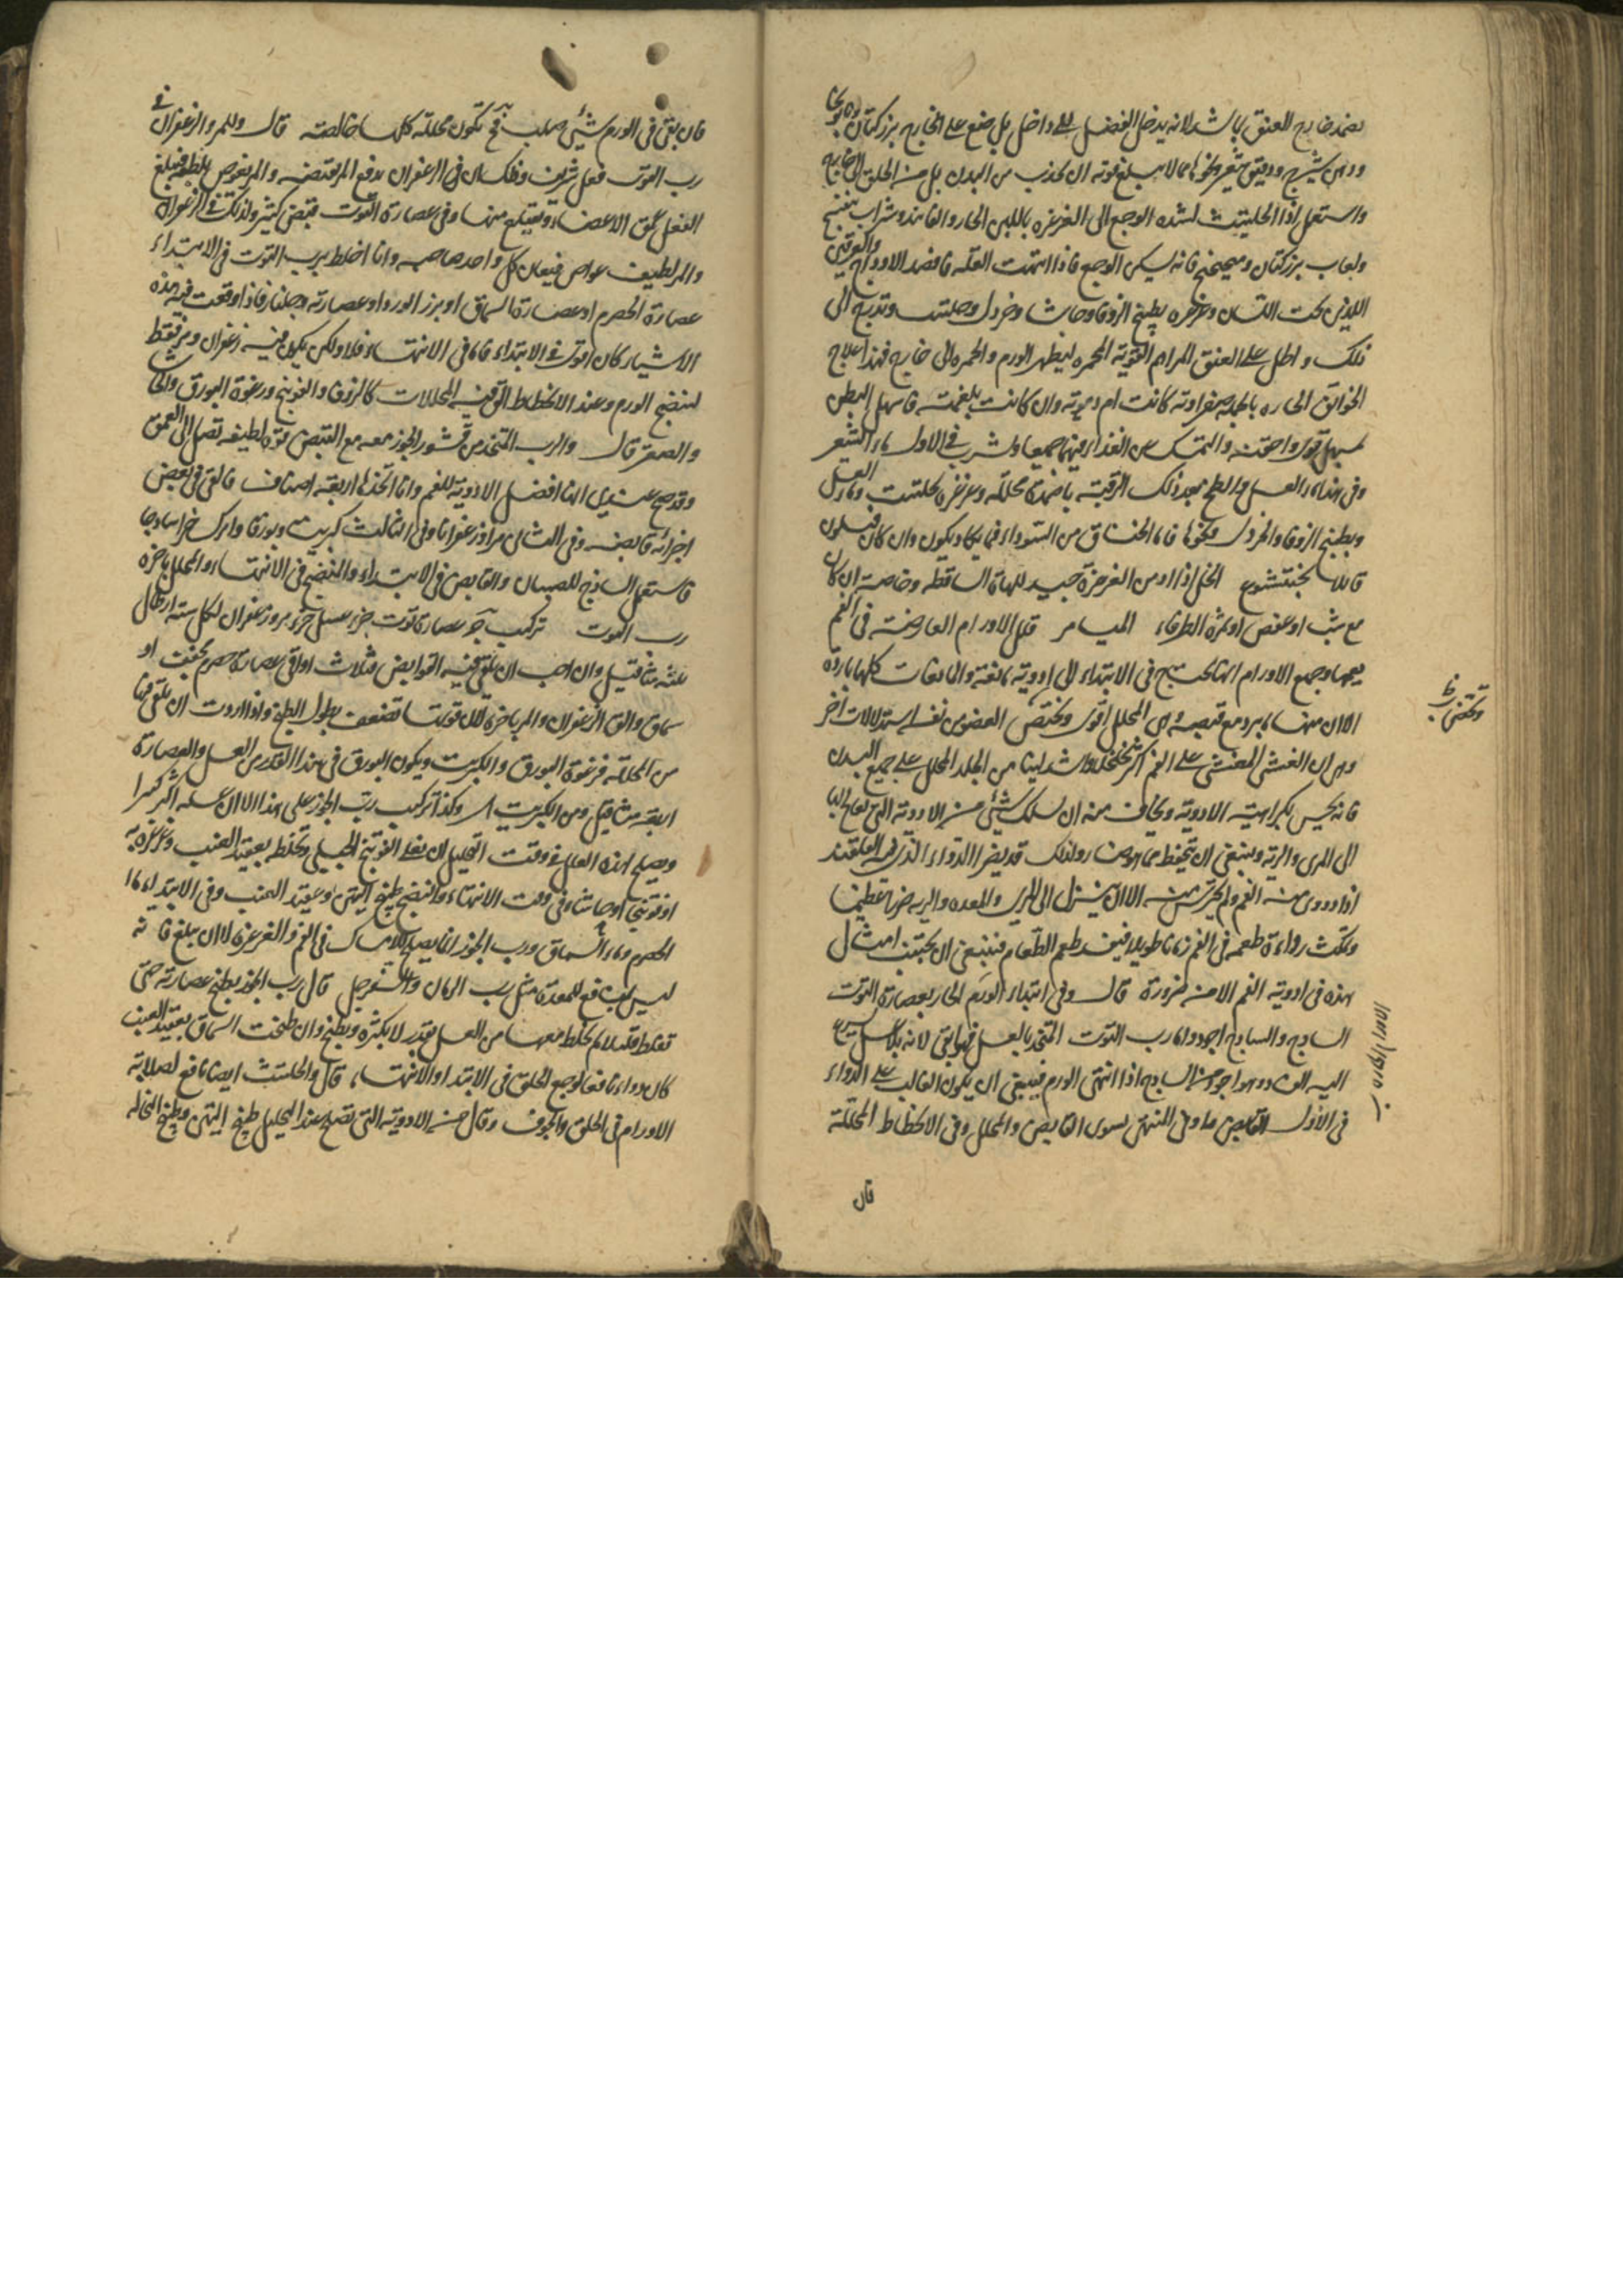 يضمد خارج العنق بما شد لانه يدخل الفضل الى داخل بل ضع على الخارج بزر كتان
ودهن شيرج ودقيق شعير ونحوها مما لا يبلغ قوته ان يجذب من البدن بل من الحلق الى خارج
واستعمل اذا الحليتيت لشدة الوجع الى الغرغرة باللبن الحار والفانيذ وشراب بنفسج
ولعاب بزر كتان وميبختج فانه يسكن الوجع فاذا انتهت العلة فافصد الاوداج والعرقين
اللذين تحت اللسان وغرغره بطبيخ الزوفا وحاشا وخردل وحلتيت وتدرج الى
ذلك واطل على العنق المراهم القوية المحمرة ليظهر الورم والحمرة الى خارج فهذا علاج
الخوانيق الحارة بالجملة صفراوية كانت ام دموية وان كانت بلغمية فاسهل البطن
بمسهل قوى واحقنه والتمسك عن الغذاء فيهما جميعا ويشرب فى الاول ماء الشعير
وفى هذا ماء العسل والطخ بعد ذلك الرقبة باضمدة محللة وغرغره بحلتيت وماء العسل
وبطبيخ الزوفا والخردل ونحوها فاما الخناق من السوداء فما يكاد يكون وان كان فيكون
قليلا بختيشوع الخل اذا ادمن الغرغرة جيد للهاة الساقطة وخاصة ان كان
مع شب او عفص او ثمرة الطرفاء الميامر قال الاورام العارضة فى الفم
يعمها وجميع الاورام انها تحتاج فى الابتداء الى ادوية مانعة والمانعات كلها باردة
الا ان منها ما يبرد مع قبضه وهى المحلل اقوى ويختص العضو من نفسه استدلالات اخر
وهى ان الغشى المغشى على الفم اكثر تخلخلا واشد لينا من الجلد المجلل على جميع البدن
فانه يحس بكراهية الادوية ويخاف منه ان يسلك شئ من الادوية التى يعالج بها
الى المرى والرية وينبغى ان يتحفظ مما هو ضار ولذلك قد يضر الدواء الذى فيه القلقند
اذا دووى منه الفم ولم يحترس منه الا ان ينزل الى المرى والمعدة والرية ضررا عظيما
ويمكث رداءة طعمه فى الفم زمانا طويلا فيفسد طعم الطعام فينبغى ان يجتنب امثال
هذه فى ادوية الفم الا من ضرورة قال وفى ابتداء الورم الحار بعصارة التوت
الساذج والساذج اجود واما رب التوت المتخذ بالعسل
اليه وهو اجود من الساذج اذا انتهى الورم فينبغى ان يكون الغالب على الدواء
فى الاول القابض ما وفى المنتهى يسوى القابض والمحلل وفى الانحطاط المحللة
قال
فان بقى فى الورم شئ صلب فح تكون محللة كلها خالصة قال وللمر والزعفران فى
رب التوت فعل شريف وذلك ان فى الزعفران مع المر قبضه والمر يغوص بلطفه فيبلغ
الفعل عمق الاعضاء ويقلع منها وفى عصارة التوت قبض كثير وكذلك فى الزعفران
والمر لطيف غواص فيعين كل واحد صاحبه وانا اخلط برب التوت فى الابتداء
عصارة الحصرم او عصارة السماق او بزر الورد او عصارته وجلنار فاذا وقعت فيه هذه
الاشياء كان اقوى فى الابتداء فاما فى الانتهاء فلا ولكن يكون فيه زعفران ومر فقط
لينضج الورم وعند الانحطاط القى فيه المحللات كالزوفا والفوتنج ورغوة البورق والحاشا
والصعتر قال والرب المتخذ من قشور الجوز معه مع القبض قوة لطيفة تصل الى العمق
وقد صح عندى انه افضل الادوية للفم وانا اتخذها اربعة اصناف فالقى فى بعض
اجزائه قابضه وفى الثانى مرا وزعفرانا وفى الثالث كبريتا وبورقا واترك جزءا ساذجا
فاستعمل الساذج للصبيان والقابض فى الابتداء والمنضج فى الانتهاء والمحلل باخره
رب التوت تركيب عصارة توت جزء عسل جزء مر وزعفران لكل ستة ارطال
ثلثة مثاقيل وان احب ان يلقى فيه القوابض فثلاث اواقى عصارة حصرم مجفف او
سماق والق الزعفران والمر باخرة لئلا قوتها تضعف بطول الطبخ واذا اردت ان تلقى فيها
من المحللة فرغوة البورق والكبريت ويكون البورق فى هذا القدر من العسل والعصارة
اربعة مثاقيل ومن الكبريت وكذا تركيب رب الجوز على هذا الا ان عسله اكثر كثيرا
ويصلح لهذه العلل فى وقت التحليل ان يغلى الفوتنج الجبلى ويخلط بعقيد العنب وغرغر به
او فوتنج او حاشا وفى وقت الانتهاء والنضج طبيخ التين وعقيد العنب وفى الابتداء ماء
الحصرم وماء السماق ورب الجوز انما يصلح للامساك فى الفم والغرغرة لا ان يبلع فانه
ليس بنافع للمعدة مثل رب الرمان والسفرجل قال رب الجوز يطبخ عصارته حتى
تغلظ قليلا ثم يخلط معها من العسل بقدر لا يكثره ويطبخ وان طبخت السماق بعقيد العنب
كان دواء نافعا لوجع الحلق فى الابتداء والانتهاء قال والحلتيت ايضا نافع لصلابة
الاورام فى الحلق والجوف وقال من الادوية التى تصلح عند التحليل طبيخ التين وطبيخ النخالة